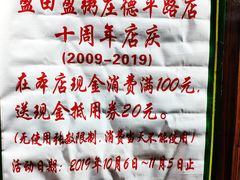 盛田盛粥庄德平路店
十周年店庆
(2009-2019)
在本店现金消费满100元,
送现金抵用券20元。
(无使用张数限制,消费当天不能使用)
活动日期:2019年10月6日~11月5日止